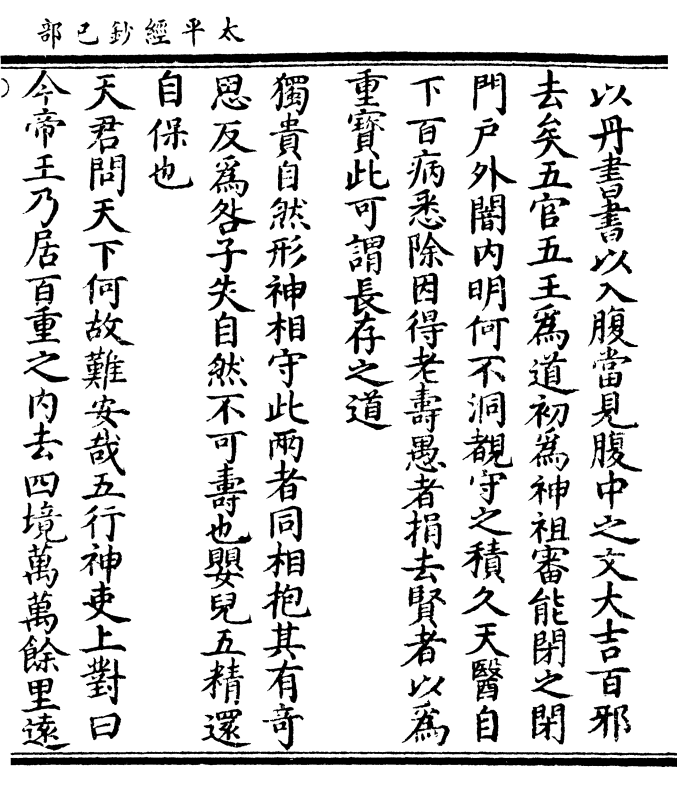 太平經鈔己部
以丹書書以入腹當見腹中之文大吉百邪
去矣五官五王爲道初爲神祖審能閉之閉
門戶外闇內明何不洞覩守之積久天醫自
下百病悉除因得老壽愚者捐去賢者以爲
重寶此可謂長存之道
獨貴自然形神相守此兩者同相抱其有奇
思反爲咎子失自然不可壽也嬰兒五精還
自保也
天君問天下何故難安哉五行神吏上對曰
今帝王乃居百重之內去四境萬萬餘里遠